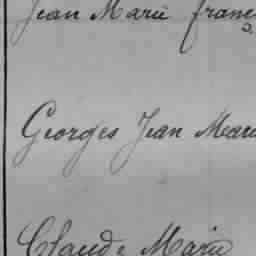 Jean Marie franç
Georges Jean Mari
Claude Marie